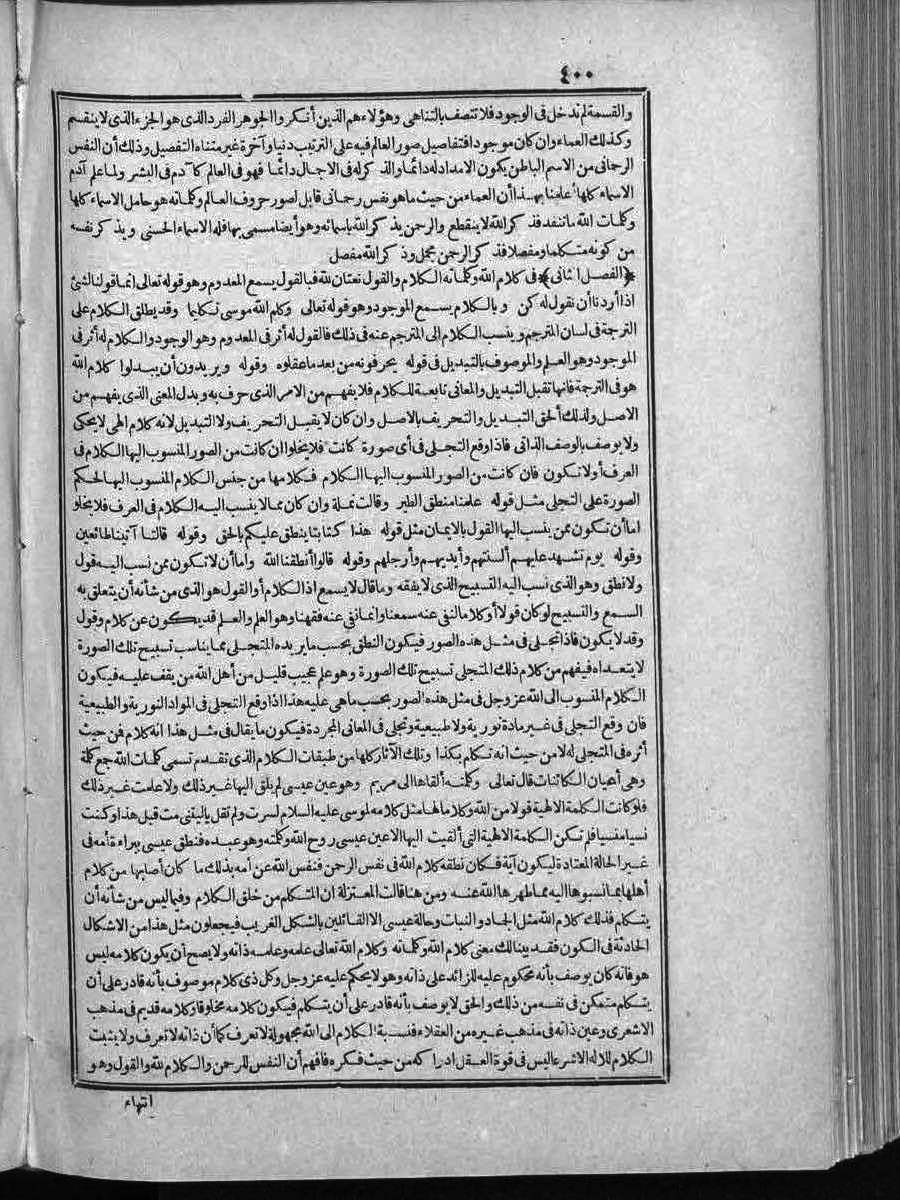 ٤٠٠
والقسمة لم تدخل فى الوجود فلا تتصف بالتناهى وهؤلاء هم الذين أنكروا الجوهر الفرد الذى هو الجزء الذى لا ينقسم
وكذلك العماء وان كان موجودا فتفاصيل صور العالم فيه على الترتيب دنيا وآخرة غير متناه التفصيل وذلك أن النفس
الرحمانى من الاسم الباطن يكون الامداد له دائما والذكر له فى الاجمال دائما فهو فى العالم كآدم فى البشر ولما علم آدم
الاسماء كلها أعلمنا بهذا أن العماء من حيث ما هو نفس رحمانى قابل لصور حروف العالم وكلماته هو حامل الاسماء كلها
وكلمات الله ما تنفد فذكر الله لا ينقطع والرحمن يذكر الله باسمائه وهو أيضا مسمى بها فله الاسماء الحسنى ويذكر نفسه
من كونه متكلما ومفصلا فذكر الرحمن مجمل وذكر الله مفصل
﴿الفصل الثانى﴾ فى كلام الله وكلماته الكلام والقول نعتان لله فبالقول يسمع المعدوم وهو قوله تعالى انما قولنا لشئ
اذا أردناه أن نقول له كن وبالكلام يسمع الموجود وهو قوله تعالى وكلم الله موسى تكليما وقد يطلق الكلام على
الترجمة فى لسان المترجم وينسب الكلام الى المترجم عنه فى ذلك فالقول له أثر فى المعدوم وهو الوجود والكلام له أثر فى
الموجود وهو العلم والموصوف بالتبديل فى قوله يحرفونه من بعد ما عقلوه وقوله ويريدون أن يبدلوا كلام الله
هو فى الترجمة فانها تقبل التبديل والمعانى تابعة للكلام فلا يفهم من الامر الذى حرف به وبدل المعنى الذى يفهم من
الاصل ولذلك ألحق التبديل والتحريف بالاصل وان كان لا يقبل التحريف ولا التبديل لانه كلام الهى لا يحكى
ولا يوصف بالوصف الذاتى فاذا وقع التجلى فى أى صورة كانت فلا يخلوا ان كانت من الصور المنسوب اليها الكلام فى
العرف أولا تكون فان كانت من الصور المنسوب اليها الكلام فكلامها من جنس الكلام المنسوب اليها لحكم
الصورة على التجلى مثل قوله علمنا منطق الطير وقالت نملة وان كان مما لا ينسب اليه الكلام فى العرف فلا يخلو
اما أن تكون ممن ينسب اليها القول بالايمان مثل قوله هذا كتابنا ينطق عليكم بالحق وقوله قالتا أتينا طائعين
وقوله يوم تشهد عليهم ألسنتهم وأيديهم وأرجلهم وقوله قالوا أنطقنا الله واما أن لا تكون ممن نسب اليه قول
ولا نطق وهو الذى نسب اليه التسبيح الذى لا يفقه وما قال لا يسمع اذ الكلام أو القول هو الذى من شأنه أن يتعلق به
السمع والتسبيح لو كان قولا أو كلاما لنفى عنه سمعنا وانما نفى عنه فقهنا وهو العلم والعلم قد يكون عن كلام وقول
وقد لا يكون فاذا تجلى فى مثل هذه الصور فيكون النطق بحسب ما يريده المتجلى مما يناسب تسبيح تلك الصورة
لا يتعداه فيفهم من كلام ذلك المتجلى تسبيح تلك الصورة وهو علم عجيب قليل من أهل الله من يقف عليه فيكون
الكلام المنسوب الى الله عز وجل فى مثل هذه الصور بحسب ما هى عليه هذا اذا وقع التجلى فى المواد النورية والطبيعية
فان وقع التجلى فى غير مادة نورية ولا طبيعية وتجلى فى المعانى المجردة فيكون ما يقال فى مثل هذا انه كلام فمن حيث
أثره فى المتجلى له لا من حيث انه تكلم بكذا وتلك الآثار كلها من طبقات الكلام الذى تقدم تسمى كلمات الله جمع كلمة
وهى أعيان الكائنات قال تعالى وكلمته ألقاها الى مريم وهو عين عيسى لم يلق اليها غير ذلك ولا علمت غير ذلك
فلو كانت الكلمة الالهية قولا من الله وكلاما لها مثل كلامه لموسى عليه السلام لسرت ولم تقل ياليتنى مت قبل هذا وكنت
نسيا منسيا فلم تكن الكلمة الالهية التى ألقيت اليها الا عين عيسى روح الله وكلمته وهو عبده فنطق عيسى ببراءة أمه فى
غير الحالة المعتادة ليكون آية فكان نطقه كلام الله فى نفس الرحمن فنفس الله عن أمه بذلك ما كان أصابها من كلام
أهلها بما نسبوها اليه مما طهرها الله عنه ومن هنا قالت المعتزلة ان المتكلم من خلق الكلام وفيما ليس من شأنه أن
يتكلم فذلك كلام الله مثل الجماد والنبات وحالة عيسى الا القائلين بالشكل الغريب فيجعلون مثل هذا من الاشكال
الحادثة فى الكون فقد بينا لك معنى كلام الله وكلماته وكلام الله تعالى علمه وعلمه ذاته ولا يصح أن يكون كلامه ليس
هو فانه كان يوصف بأنه محكوم عليه للزائد على ذاته وهو لا يحكم عليه عز وجل وكل ذى كلام موصوف بأنه قادر على أن
يتكلم متمكن فى نفسه من ذلك والحق لا يوصف بأنه قادر على أن يتكلم فيكون كلامه مخلوقا وكلامه قديم فى مذهب
الاشعرى وعين ذاته فى مذهب غيره من العقلاء فنسبة الكلام الى الله مجهولة لا تعرف كما أن ذاته لا تعرف ولا يثبت
الكلام للاله الا شرعا ليس فى قوة العقل ادراكه من حيث فكره فافهم أن النفس للرحمن والكلام لله والقول وهو
انتهاء